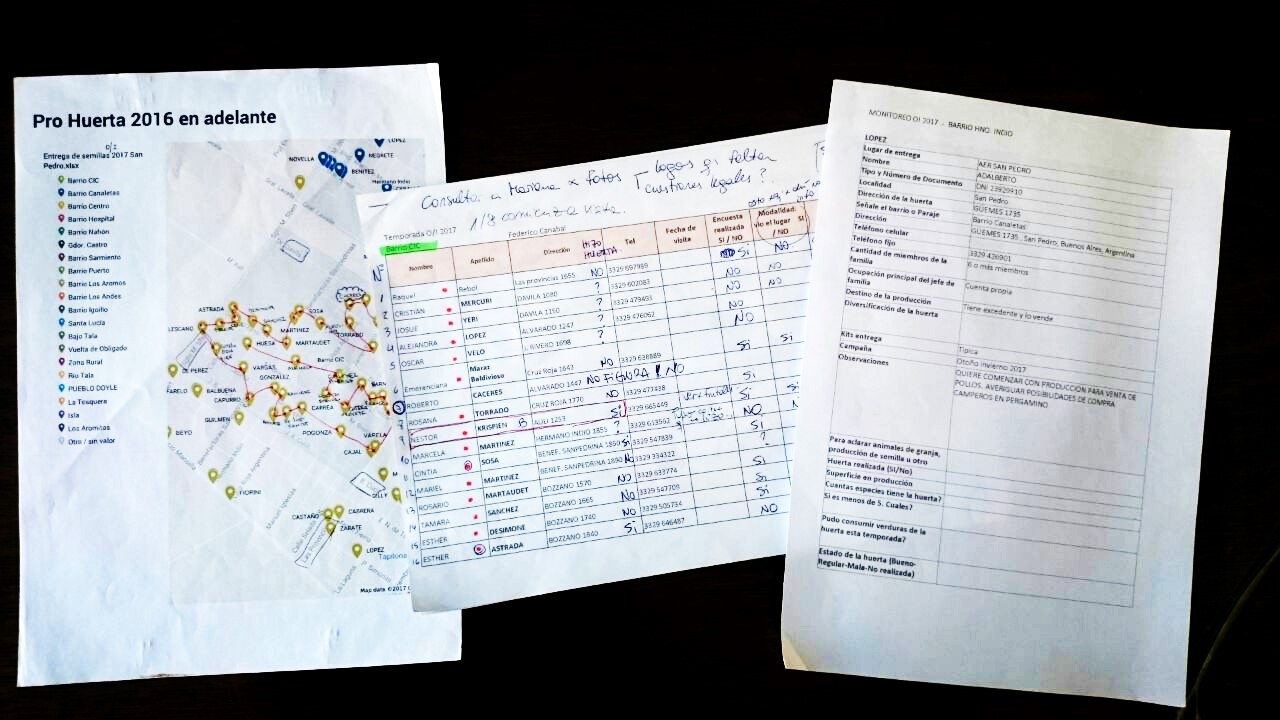 Pro Huerta 2016 en adelante
Entrega de semillas 2017 San
Pedro.xlsx
Barrio CIC
Barrio Canaletas
Barrio Centro
Barrio Hospital
Barrio Nahón
Gdor. Castro
Barrio Sarmiento
Barrio Puerto
Barrio Los Aromos
Barrio Los Andes
Barrio Igoillo
Santa Lucía
Bajo Tala
Vuelta de Obligado
Zona Rural
Río Tala
PUEBLO DOYLE
La Tosquera
Isla
Los Aromitos
Otro / sin valor
LOPEZ
NOVELLA
NEGRETE
BENITEZ
Hermano Indio
ASTRADA
SOSA
LESCANO
MARTINEZ
TORRADO
HUESA
MARTAUDET
Barrio CIC
DE PEREZ
VARGAS
GONZALEZ
BALBUENA
CAPURRO
CARREA
GUILMEN
POGONZA
VARELA
BEYO
CAJAL
FIORINI
CASTAÑO
CABRERA
ZARATE
LOPEZ
Map data ©2017
Consultar a Mariana x fotos
logos q' faltan
cuestiones legales?
1/8 comienza visita.
Temporada O/I 2017 Federico Canabal
Barrio CIC
Nº Nombre Apellido Dirección Hizo HUERTA Tel Fecha de visita Encuesta realizada SI / NO Modalidad: vio el lugar SI / NO
1 Raquel Rebol Las provincias 1655 NO 3329 697989 Si NO
2 CRISTIAN MERCURI DAVILA 1080 ? 3329 602083 NO NO
3 JOSUE YERI DAVILA 1150 ? 3329 479493 NO NO
4 ALEJANDRA LOPEZ ALVARADO 1247 ? 3329 476062 NO
5 OSCAR VELO RIVERO 1698 ? NO
6 Emerenciana Maraz Baldivioso Cruz Roja 1643 NO 3329 638889 Si Si
7 ROBERTO CACERES ALVARADO 1647 NO FIGURA NO
8 ROSANA TORRADO CRUZ ROJA 1770 NO 3329 477438 Si
9 NESTOR KRISPIEN B AULI 1253 Si 3329 665449 Si Si
10 MARCELA MARTINEZ HERMANO INDIO 1855 ? 3329 613562 NO
11 CINTIA SOSA BENEF. SANPEDRINA 1850 Si 3329 547839 Si
12 MARIEL MARTINEZ BENEF. SANPEDRINA 1890 No 3329 334322 ?
13 ROSARIO MARTAUDET BOZZANO 1570 NO 3329 633774
14 TAMARA SANCHEZ BOZZANO 1665 No 3329 547709 Si
15 ESTHER DESIMONE BOZZANO 1740 NO 3329 505734 Si
16 ESTHER ASTRADA BOZZANO 1840 Si 3329 646487 NO
MONITOREO OI 2017 - BARRIO HNO. INDIO
LOPEZ
Lugar de entrega AER SAN PEDRO
Nombre ADALBERTO
Tipo y Número de Documento DNI 23929910
Localidad San Pedro
Dirección de la huerta GÜEMES 1735
Señale el barrio o Paraje Barrio Canaletas
Dirección GUEMES 1735 , San Pedro, Buenos Aires, Argentina
Teléfono celular
Teléfono fijo 3329 426901
Cantidad de miembros de la familia 6 o más miembros
Ocupación principal del jefe de familia Cuenta propia
Destino de la producción Tiene excedente y lo vende
Diversificación de la huerta
Kits entrega Típica
Campaña Otoño Invierno 2017
Observaciones QUIERE COMENZAR CON PRODUCCION PARA VENTA DE
POLLOS. AVERIGUAR POSIBILIDADES DE COMPRA
CAMPEROS EN PERGAMINO
Para aclarar animales de granja,
producción de semilla u otro
Huerta realizada (SI/No)
Superficie en producción
Cuantas especies tiene la huerta?
Si es menos de 5. Cuales?
Pudo consumir verduras de la
huerta esta temporada?
Estado de la huerta (Bueno-
Regular-Mala-No realizada)